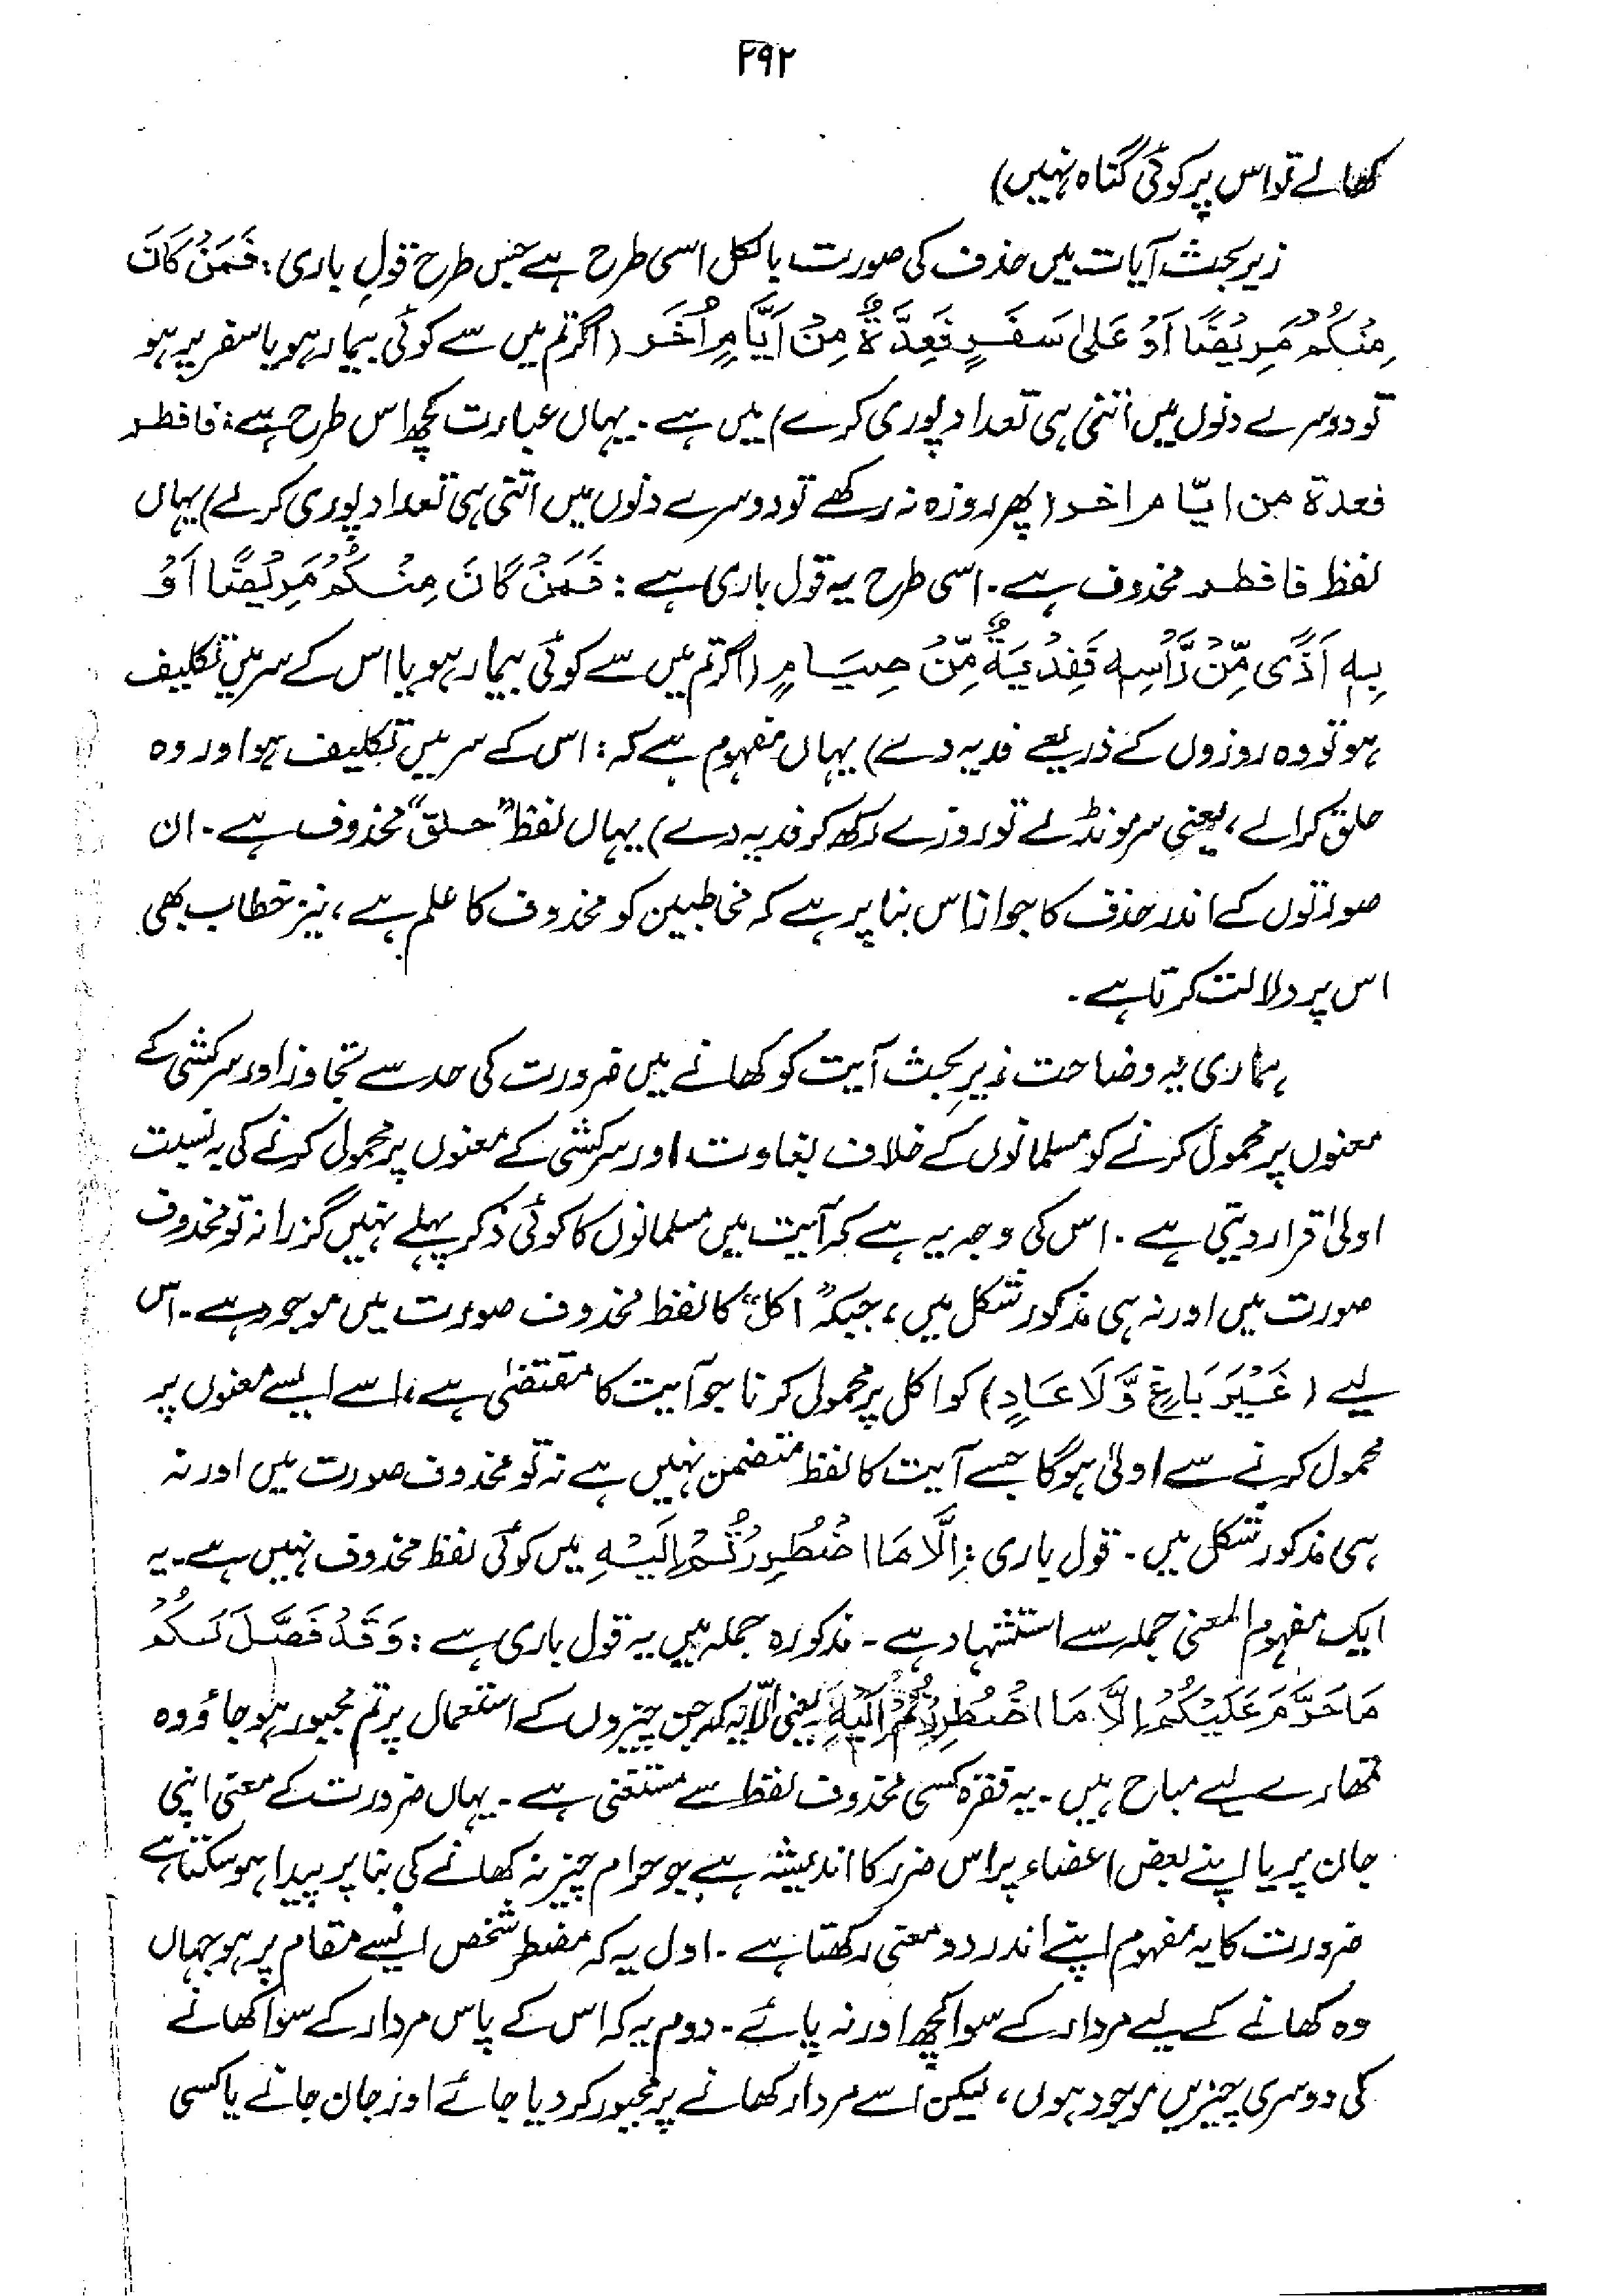 ۲۹۲
کھالے تو اس پر کوئی گناہ نہیں)
زیر بحث آیات میں حذف کی صورت بالکل اسی طرح ہے جس طرح قولِ باری: فَمَنْ كَانَ
مِنْكُمْ مَرِيْضًا اَوْ عَلٰى سَفَرٍ فَعِدَّةٌ مِنْ اَيَّامٍ اُخَرَ (اگر تم میں سے کوئی بیمار ہو یا سفر پر ہو
تو دوسرے دنوں میں اتنی ہی تعداد پوری کرے) میں ہے۔ یہاں عبارت کچھ اس طرح ہے: فافطر
فعدة من ايّام اخر (پھر روزہ نہ رکھے تو دوسرے دنوں میں اتنی ہی تعداد پوری کرلے) یہاں
لفظ فافطر محذوف ہے۔ اسی طرح یہ قول باری ہے: فَمَنْ كَانَ مِنْكُمْ مَرِيْضًا اَوْ
بِهٖ اَذًى مِّنْ رَّأْسِهٖ فَفِدْيَةٌ مِّنْ صِيَامٍ (اگر تم میں سے کوئی بیمار ہو یا اس کے سر میں تکلیف
ہو تو وہ روزوں کے ذریعے فدیہ دے) یہاں مفہوم ہے کہ: اس کے سر میں تکلیف ہو اور وہ
حلق کرالے، یعنی سر مونڈلے تو روزے رکھ کر فدیہ دے) یہاں لفظ "حلق" محذوف ہے۔ ان
صورتوں کے اندر حذف کا جواز اس بنا پر ہے کہ مخاطبین کو محذوف کا علم ہے، نیز خطاب بھی
اس پر دلالت کرتا ہے۔
ہماری یہ وضاحت زیرِ بحث آیت کو کھانے میں ضرورت کی حد سے تجاوز اور سرکشی کے
معنوں پر محمول کرنے کو مسلمانوں کے خلاف بغاوت اور سرکشی کے معنوں پر محمول کرنے کی بہ نسبت
اولیٰ قرار دیتی ہے۔ اس کی وجہ یہ ہے کہ آیت میں مسلمانوں کا کوئی ذکر پہلے نہیں گزرا نہ تو محذوف
صورت میں اور نہ ہی مذکور شکل میں، جبکہ "اکل" کا لفظ محذوف صورت میں موجود ہے۔ اس
لیے (غَيْرَ بَاغٍ وَّلَا عَادٍ) کو اکل پر محمول کرنا جو آیت کا مقتضیٰ ہے، اسے ایسے معنوں پر
محمول کرنے سے اولیٰ ہوگا جسے آیت کا لفظ متضمن نہیں ہے نہ تو محذوف صورت میں اور نہ
ہی مذکور شکل میں۔ قول باری: اِلَّا مَا اضْطُرِرْتُمْ اِلَيْهِ میں کوئی لفظ محذوف نہیں ہے۔ یہ
ایک مفہوم المعنی جملہ سے استشہاد ہے۔ مذکورہ جملہ میں یہ قول باری ہے: وَقَدْ فَصَّلَ لَكُمْ
مَا حَرَّمَ عَلَيْكُمْ اِلَّا مَا اضْطُرِرْتُمْ اِلَيْهِ یعنی الّا یہ کہ جن چیزوں کے استعمال پر تم مجبور ہو جاؤ وہ
تمھارے لیے مباح ہیں۔ یہ فقرہ کسی محذوف لفظ سے مستغنی ہے۔ یہاں ضرورت کے معنی اپنی
جان پر یا اپنے بعض اعضاء پر اس ضرر کا اندیشہ ہے جو حرام چیز نہ کھانے کی بنا پر پیدا ہو سکتا ہے
ضرورت کا یہ مفہوم اپنے اندر دو معنی رکھتا ہے۔ اول یہ کہ مضطر شخص ایسے مقام پر ہو جہاں
وہ کھانے کے لیے مردار کے سوا کچھ اور نہ پائے۔ دوم یہ کہ اس کے پاس مردار کے سوا کھانے
کی دوسری چیزیں موجود ہوں، لیکن اسے مردار کھانے پر مجبور کر دیا جائے اور جان جانے یا کسی